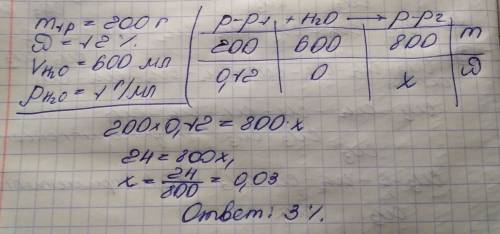 m₁р = 200 г
ω = 12 %
VH₂O = 600 мл
ρH₂O = 1 г/мл
р-р1 + H₂O ⟶ р-р2
200 600 800 m
0,12 0 x ω
200×0,12 = 800·x
24 = 800x,
x = 24/800 = 0,03
Ответ: 3 %.